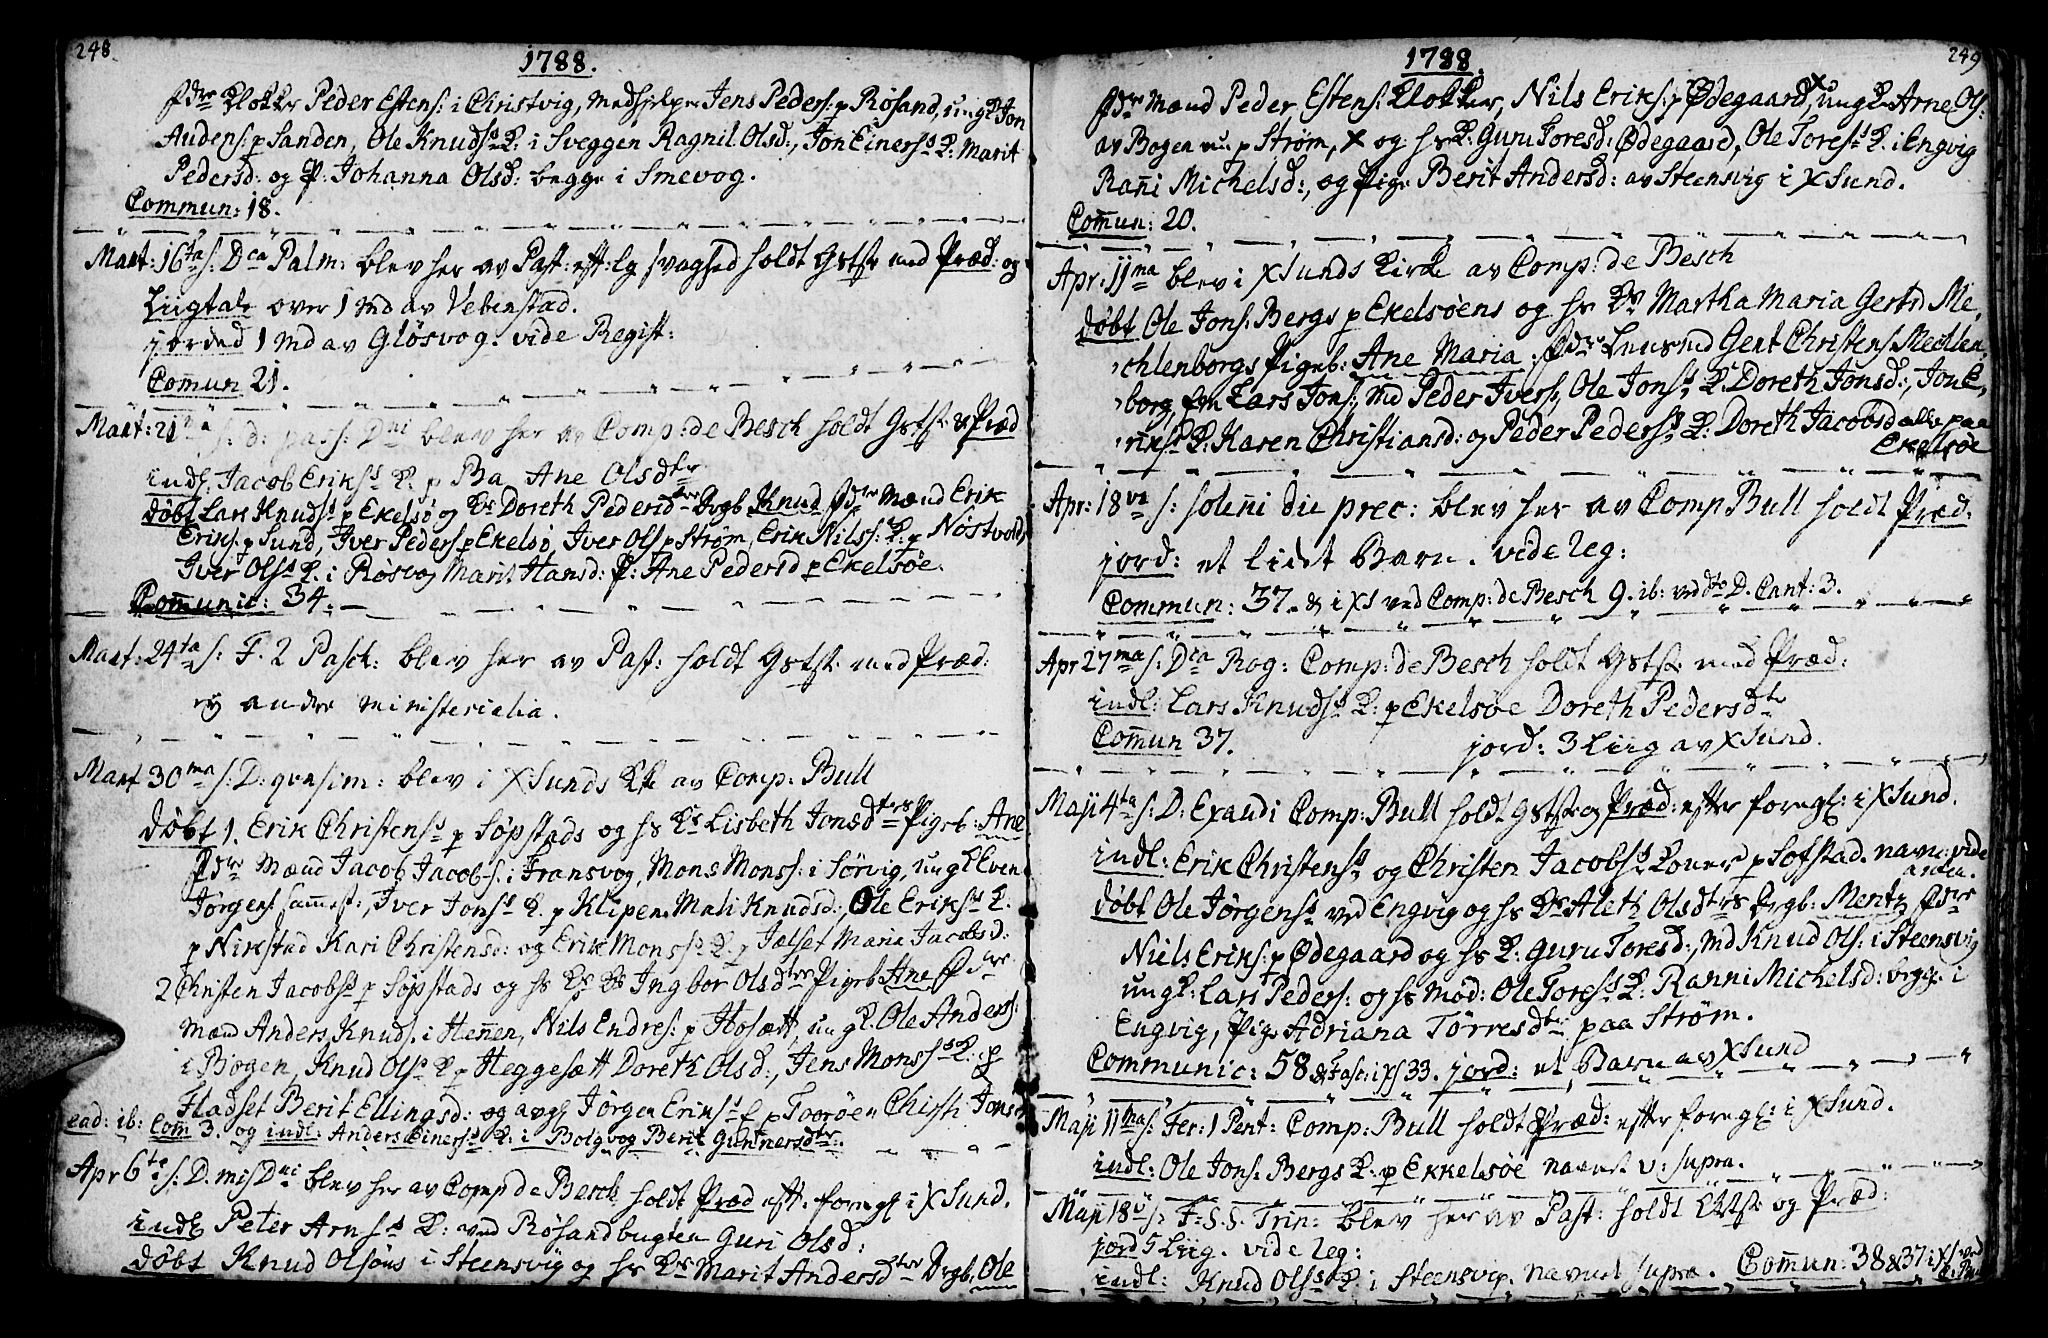 248.
1788.
fdre Klokker Peder Estens: i Christvig, Medhielper Jens Peders: p Røsand, ung K Jon
Audens: p Sanden, Ole Knudss K: i Sveggen Ragnil Olsd:, Jon Einerss K: Marit
Pedersd: og P: Johanna Olsd: begge i Smevog.
Commun: 18.
Mart: 16ta s: Dca Palm: blev her av Past: eft: lg svaghed holdt Gstst med Præd: og
Liigtale over 1 Md av Vebenstad.
jorded 1 Md av Gløsvog. vide Regist:
Com̄un 21.
Mart: 21ma s: d: pass: Dni blev her av Comp: de Besch holdt Gstst & Præd
indl: Jacob Erikss K: p Ba Ane Olsdtr
døbt Lars Knudss p Ekelsø og K: Doreth Pedersd Drgb Knud fdre Mænd Erik
Eriks: p Sund, Iver Peders p Ekelsø Iver Ols p Strøm, Erik Nilss: K: p Nøstvold,
Iver Olss K. i Røsvog Marit Hansd: P: Ane Pedersd p Ekelsøe.
Com̄unic: 34.
Mart: 24ta s: F. 2 Pasch: blev her av Past: holdt Gstst med Præd:
ey andre ministerialia.
Mart 30ma s: D: qvasim: blev i XSunds Kke av Comp: Bull
døbt 1. Erik Christenss p Søpstads og hs Ks Lisbeth Jonsdtrs Pigeb: Ane
fdre Mænd Jacob Jacobs: i Fransvog, Mons Monss: i Sørvig, ung K Even
Jørgens sammest:, Iver Jonss K. p Klipen Mali Knudsd:, Ole Erikss K.
p Nirstad Kari Christensd: og Erik Monss K. p Jælset Maria Jacobsd:
2 Christen Jacobss p Søpstads og hs Ks Ingbor Olsdtrs Pigeb Ane fdre
Mænd Anders Knuds. i Hen̄en, Nils Endres: p Hosætt, ung K. Ole Anderss:
i Bogen, Knud Olss K p Heggesætt Doreth Olsd:, Jens Monss K. p
Fladset Berit Ellingsd: og avgl Jørgen Erikss p Toorøen Chirsti Jonsd
ead: ib: Com̄ 3. og indl: Anders Einerss K: i Bolgvog Berit Gun̄nersdtr.
Apr 6te s: D. mis Dni blev her av Comp de Besch holdt Præd eft: foregl i XSund.
indl Peter Arnss K: ved Røsandbugten Guri Olsd:
døbt Knud Olsøns i Steensvig og hs Ks Marit Andersdtrs Drgb. Ole
249
1788.
fdr Mænd Peder Estens: Klokker, Nils Eriks: p Ødegaard, X ung K Arne Ols:
av Bogen nu p Strøm, X og hs K: Guru Toresd: Ødegaard, Ole Toress K. i Engvig
Ran̄i Michelsd:, og Pige Berit Andersd: av Steensvig i XSund.
Com̄un: 20.
Apr: 11ma blev i XSunds Kirke av Comp: de Besch
døbt Ole Jons: Bergs p Ekelsøens og hs K: Martha Maria Gertrd Me,
chlenborgs Pigeb: Ane Maria. fdre Gert Christens Mechlen
borg, Lars Jons:, Md Peder Ivers:, Ole Jonss K. Doreth Jonsd:, Jon E,
rikss K: Karen Christiansd: og Peder Pederss K: Doreth Jacobsd alle paa
Ekelsøe
Apr: 18va s: solen̄i die prec: blev her av Comp Bull holdt Præd:
jord: et lidet Barn. vide leg:
Commun: 37. & i XS ved Comp: de Besch 9. ib: ved do D. Cant: 3.
Apr 27ma s: Dca Rog: Comp: de Besch holdt Gstst med Præd:
indl: Lars Knudss K: p Ekelsøe Doreth Pedersdtr
Com̄un 37. jord: 3 Liig av XSund.
Maji 4ta s: D: Exaudi Comp: Bull holdt Gstst og Præd: efter foregl: i XSund.
indl: Erik Christenss og Christen Jacobss Koner p Sofstad. navn: vide
antea.
døbt Ole Jørgenss ved Engvig og hs Ks Aleth Olsdtrs Drgb: Mentz fdre
Niels Eriks: p Ødegaard og hs K: Guru Toresd:, Md Knud Ols: i Steensvig
ung K: Lars Peders: og hs Mod: Ole Toress K: Ranni Michelsd: begge i
Engvig, Pige Adriana Tørresdtr paa Strøm.
Communic: 58 & i XS 33. jord: et Barn av XSund
Maji 11ma s: Fer: 1 Pent: Comp: Bull holdt Præd: efter foregl: i XSund.
indl: Ole Jons: Bergs K: p Ekkelsøe navnet v: supra.
Maji 18v s: F: S. S. Trin̄: blev her av Past: holdt Gstst og Præd:
jord 5 Liig. vide leg:
indl: Knud Olss K: i Steensvig. navnet supra. Com̄un: 38 & 37 i XS ved